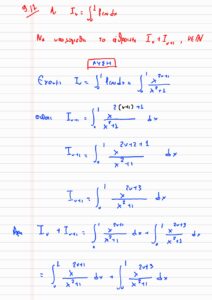 9.17 Αν I_ν = ∫₀¹ f(x) dx
Να υπολογίσετε το άθροισμα I_ν + I_{ν+1}, ν∈ℕ
ΛΥΣΗ
Έχουμε I_ν = ∫₀¹ f(x) dx = ∫₀¹ x^{2ν+1}/(x²+1)
οπότε I_{ν+1} = ∫₀¹ x^{2(ν+1)+1}/(x²+1) dx
I_{ν+1} = ∫₀¹ x^{2ν+2+1}/(x²+1) dx
I_{ν+1} = ∫₀¹ x^{2ν+3}/(x²+1) dx
Άρα I_ν + I_{ν+1} = ∫₀¹ x^{2ν+1}/(x²+1) dx + ∫₀¹ x^{2ν+3}/(x²+1) dx
= ∫₀¹ x^{2ν+1}/(x²+1) dx + ∫₀¹ x^{2ν+3}/(x²+1) dx